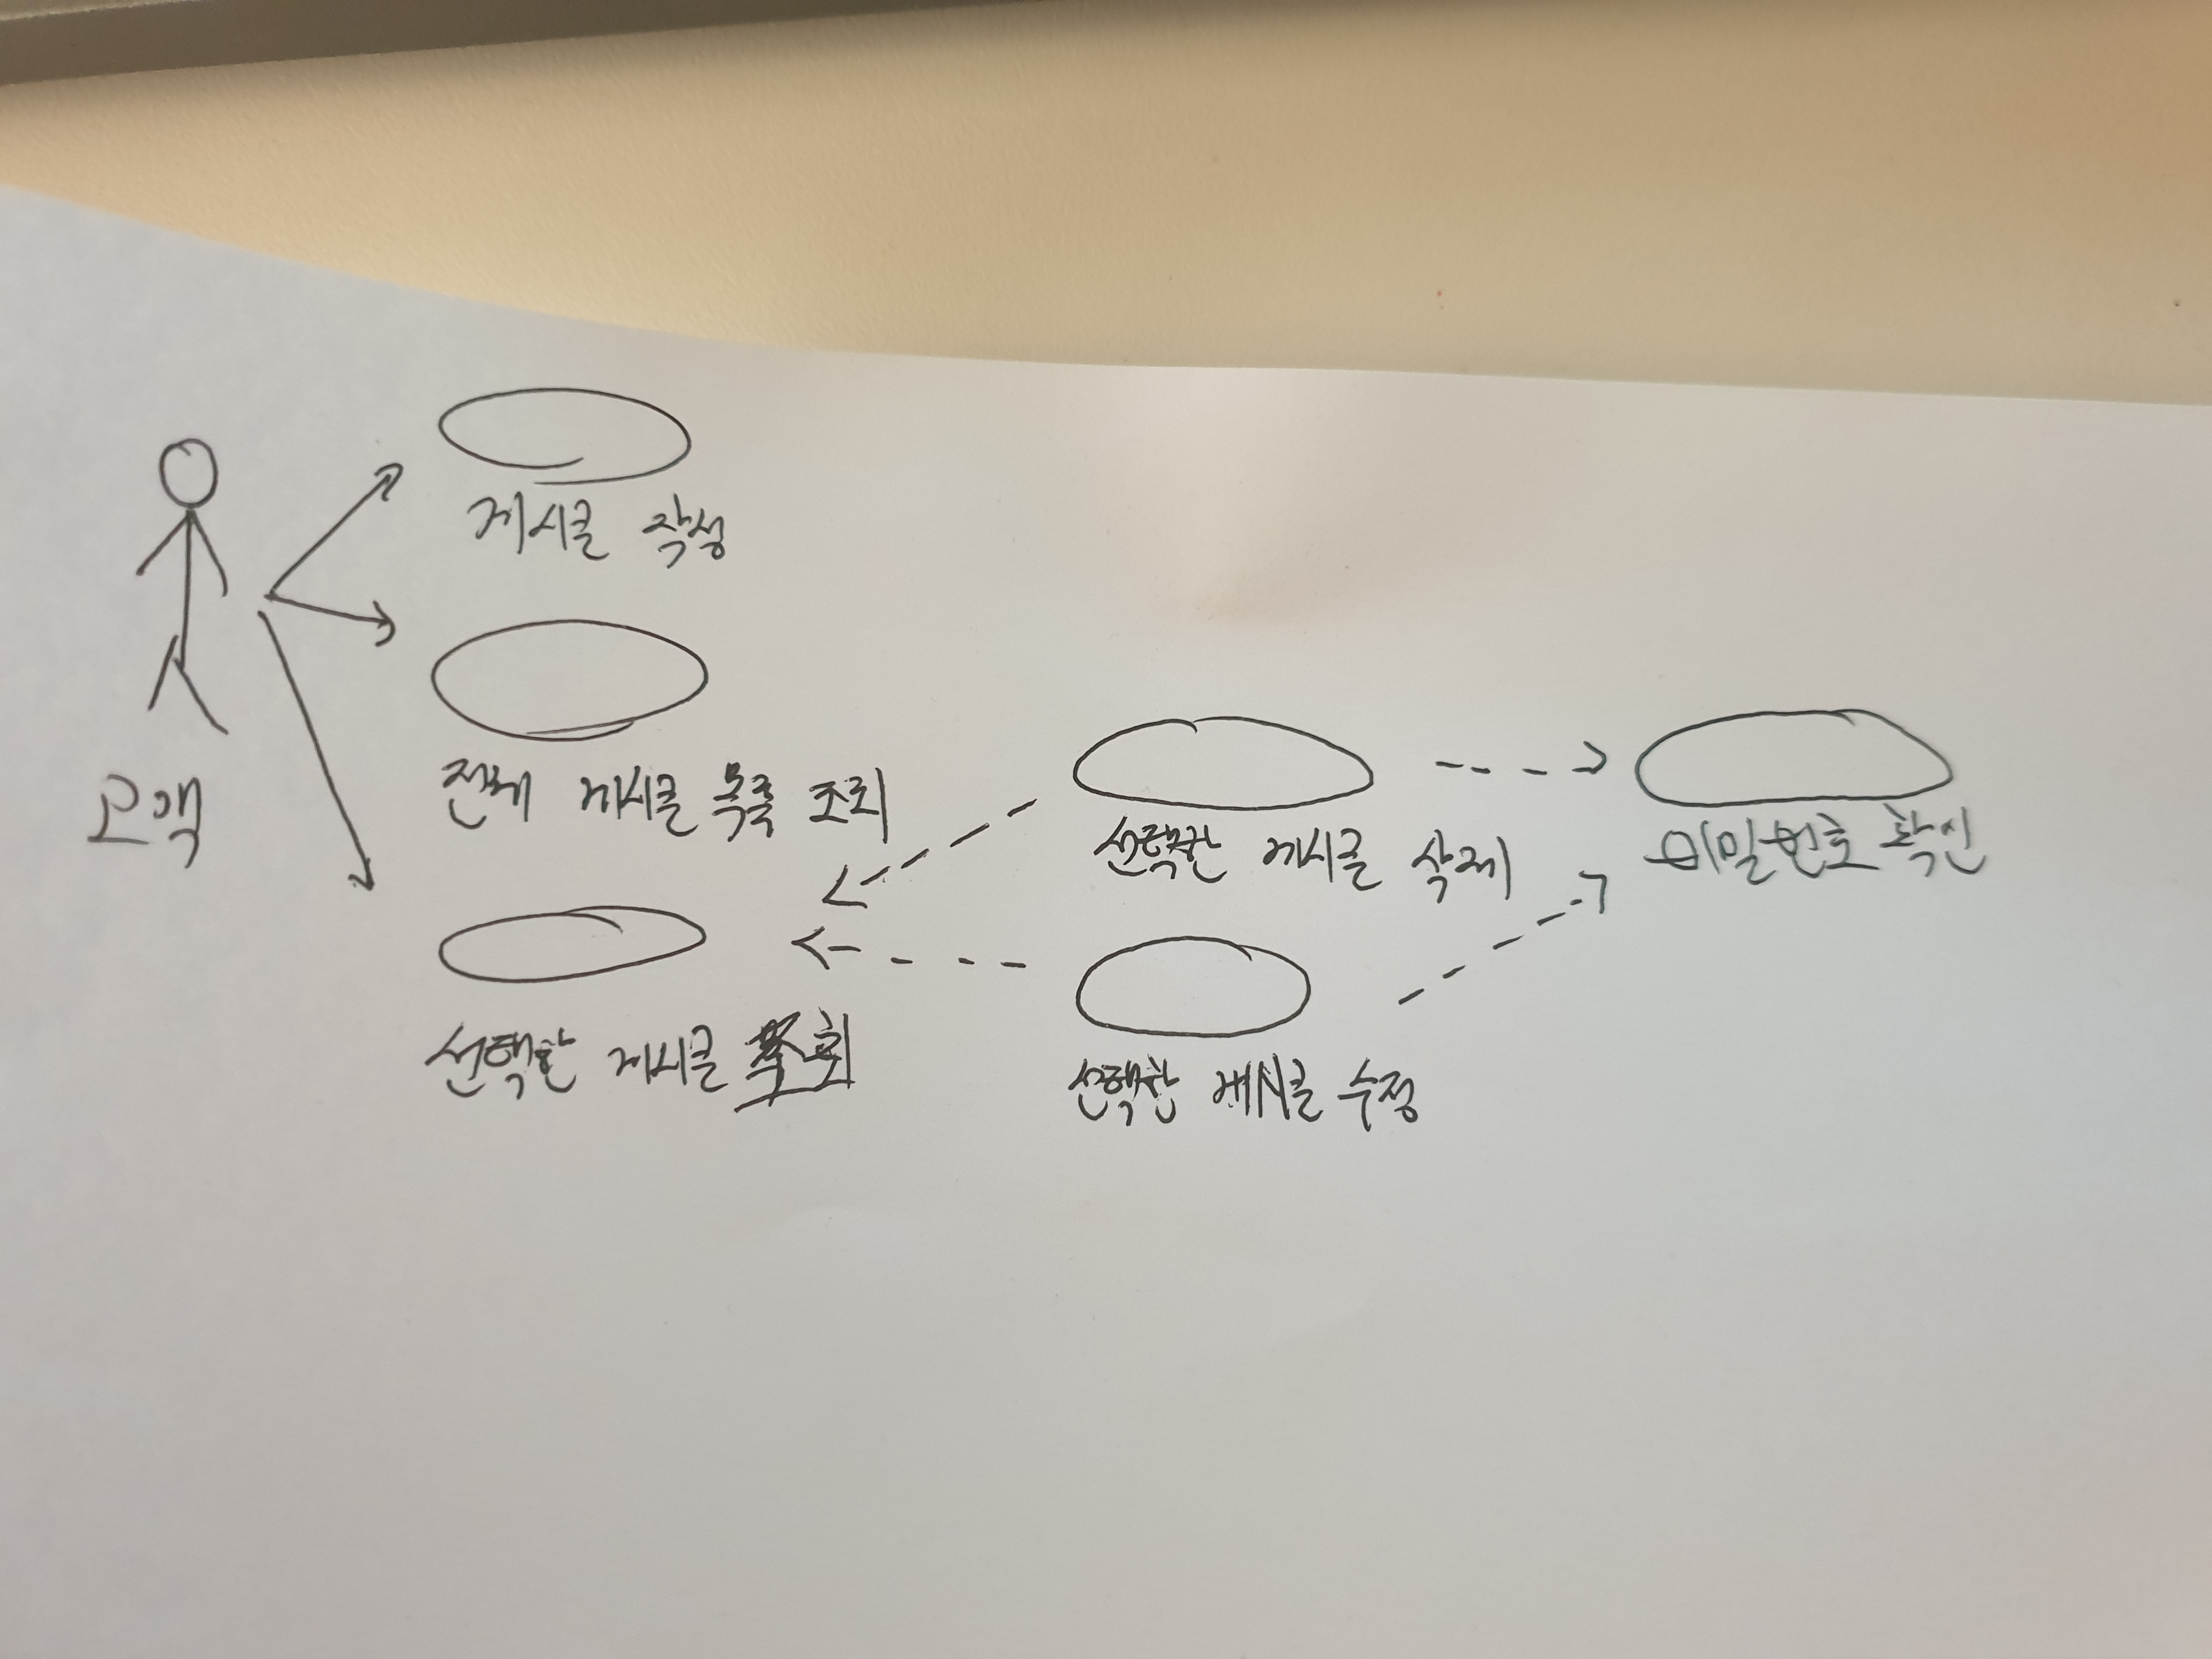 고객
게시글 작성
전체 게시글 목록 조회
선택한 게시글 조회
선택한 게시글 삭제
선택한 게시글 수정
비밀번호 확인